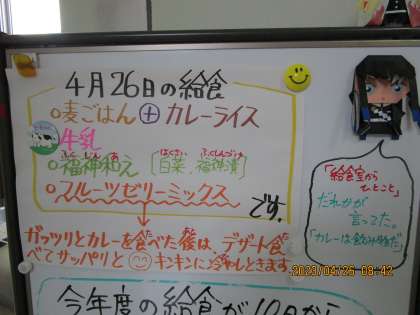 4月26日の給食
○麦ごはん⊕カレーライス
牛乳
○福神和え〔白菜、福神漬〕
ふくじんあ
はくさい ふくしんづけ
○フルーツゼリーミックス
です。
ガッツリとカレーを食べた後は、デザート食
べてサッパリと
キンキンに冷やしときます
「給食室から
ひとこと」
だれかが
言ってた。
「カレーは飲み物だ」
2023/04/26 08:42
今年度の給食が10日から